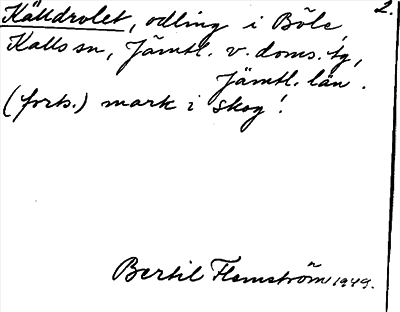 2.
Källdrolet, odling i Böle,
Kalls sn, Jämtl. v. doms. tg,
Jämtl. län.
(forts.) mark i skog!
Bertil Flemström 1949.